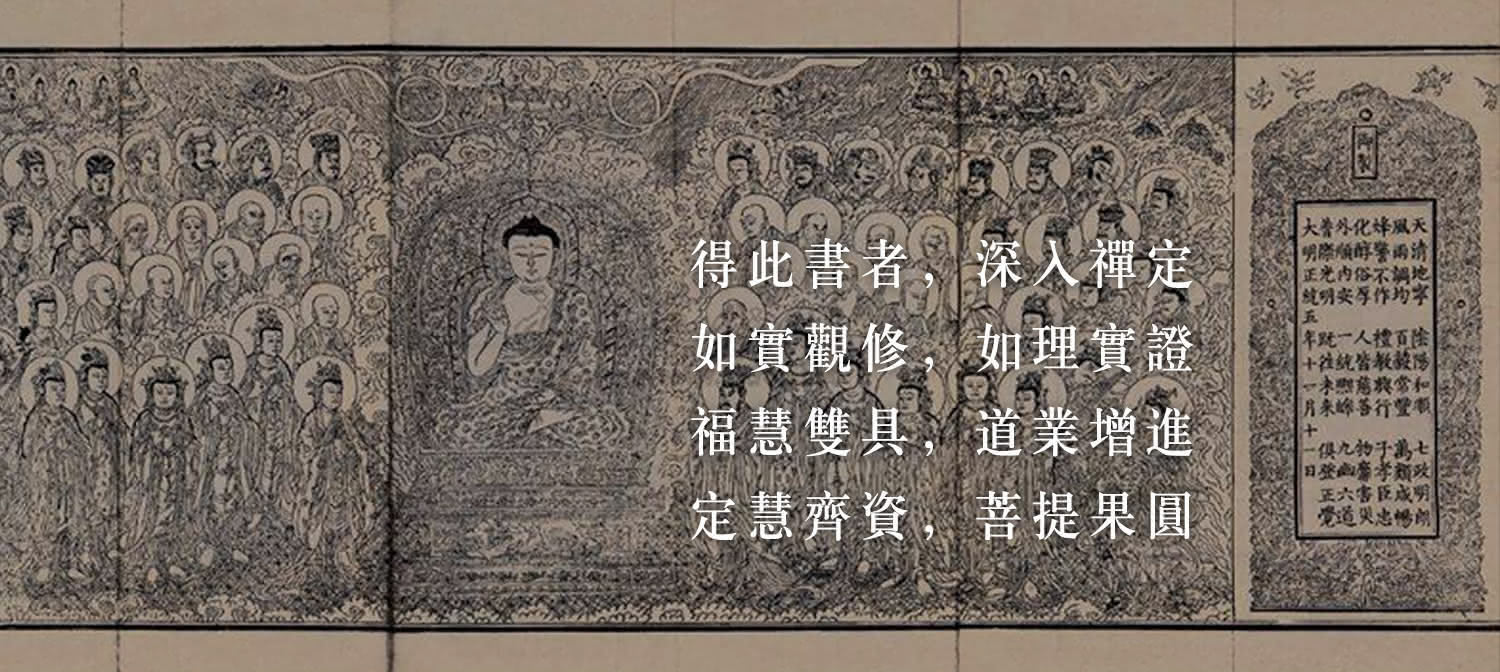 得此書者，深入禪定
如實觀修，如理實證
福慧雙具，道業增進
定慧齊資，菩提果圓
御製
天清地寧 陰陽和順 七政明朗
風雨調均 百穀常豐 萬類咸暢
烽警不作 禮教興行 子孝臣忠
化醇俗厚 人皆慈善 物靡害災
外順內安 一統熙皞 九幽六道
普際光明 旣往未來 俱登正覺
大明正統五年十一月十一日